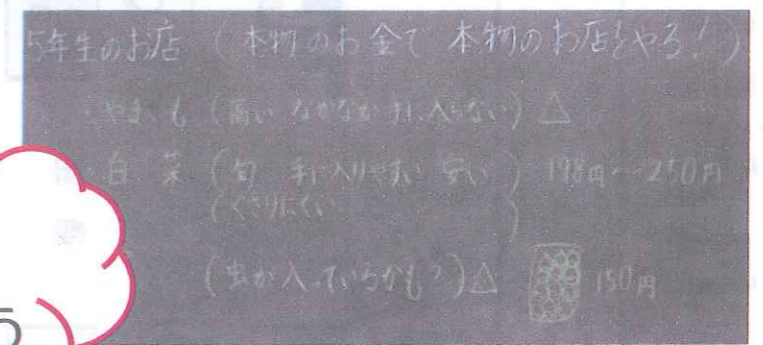 5年生のお店 (本物のお金で 本物のお店をやる!)
・やまいも (高い なかなか手に入らない) △
・白菜 (旬 手に入りやすい 安い) 198円~250円
(くさりにくい)
(虫が入っているかも?)△ 150円
う